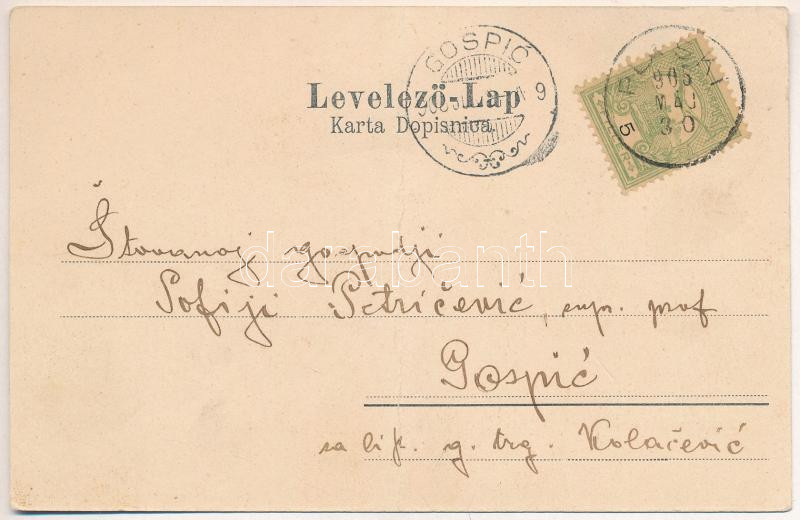 GOSPIĆ
9
905
MÁJ
30
5
Levelező-Lap
Karta Dopisnica
Štovanoj gospodji
Sofiji Petričević, sup. prof
Gospić
g. trg. Kolačević
darabanth